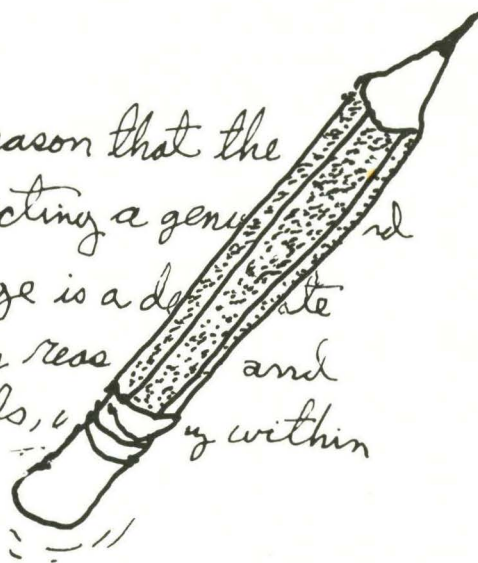 eason that the
cting a genu rd
ge is a de ate
reas and
ls, y within